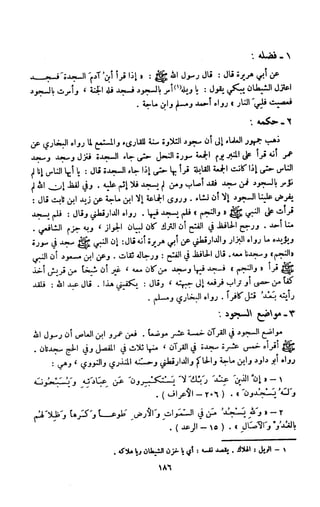 ١ - فضله :
عن أبي هريرة قال : قال رسول الله ﷺ : « إذا قرأ ابن آدم السجدة فسجد
اعتزل الشيطان يبكي يقول : يا ويله(١) أمر بالسجود فسجد فله الجنة ، وأمرت بالسجود
فعصيت فلي النار » رواه أحمد ومسلم وابن ماجة .
٢ - حكمه :
ذهب جمهور العلماء إلى أن سجود التلاوة سنة للقارىء والمستمع لما رواه البخاري عن
عمر أنه قرأ على المنبر يوم الجمعة سورة النحل حتى جاء السجدة فنزل وسجد وسجد
الناس حتى إذا كانت الجمعة القابلة قرأ بها حتى إذا جاء السجدة قال : يا أيها الناس إنا لم
نؤمر بالسجود فمن سجد فقد أصاب ومن لم يسجد فلا إثم عليه . وفي لفظ إن الله لم
يفرض علينا السجود إلا أن نشاء . وروى الجماعة إلا ابن ماجة عن زيد ابن ثابت قال :
قرأت على النبي ﷺ « والنجم » فلم يسجد فيها . رواه الدارقطني وقال : فلم يسجد
منا أحد . ورجح الحافظ في الفتح أن الترك كان لبيان الجواز ، وبه جزم الشافعي .
ويؤيده ما رواه البزار والدارقطني عن أبي هريرة أنه قال : إن النبي ﷺ سجد في سورة
« والنجم » وسجدنا معه . قال الحافظ في الفتح : ورجاله ثقات . وعن ابن مسعود أن النبي
ﷺ قرأ « والنجم » فسجد فيها وسجد من كان معه ، غير أن شيخا من قريش أخذ
كفا من حصى أو تراب فرفعه إلى جبهته ، وقال : يكفيني هذا . قال عبد الله : فلقد
رأيته بعد قتل كافراً . رواه البخاري ومسلم .
٣ - مواضع السجود :
مواضع السجود في القرآن خمسة عشر موضعاً . فعن عمرو ابن العاص أن رسول الله
ﷺ أقرأه خمس عشرة سجدة في القرآن ، منها ثلاث في المفصل وفي الحج سجدتان .
رواه أبو داود وابن ماجة والحاكم والدارقطني وحسنه المنذري والنووي ، وهي :
١ - « إن الذين عند ربك لا يستكبرون عن عبادته ويسبحونه
وله يسجدون » . ( ٢٠٦ - الأعراف ) .
٢ - « ولله يسجد من في السموات والأرض طوعاً وكرهاً وظلالهم
بالغدو والآصال » . ( ١٥ - الرعد ) .
١ - الويل : الهلاك . يقصد نفسه : أي يا حزن الشيطان ويا هلاكه .
١٨٦